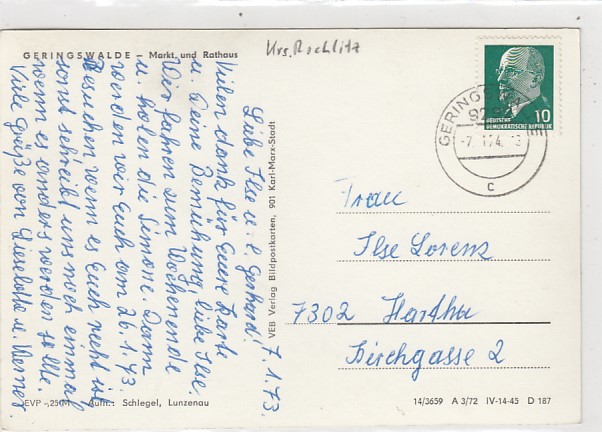 GERINGSWALDE – Markt und Rathaus
Krs. Rochlitz
7.1.73.
Liebe Ilse u. l. Gerhard!
Vielen dank für Eure Karte
u. Deine Bemühung, liebe Ilse.
Wir fahren zum Wochenende
u. holen die Simone. Dann
werden wir Euch am 26.1.73.
Besuchen wenn es Euch recht ist
sonst schreibt uns noch einmal
wenn es anders werden sollte.
Viele Grüße von Lieselotte u. Werner
EVP -,25 M Aufn.: Schlegel, Lunzenau
VEB Verlag Bildpostkarten, 901 Karl-Marx-Stadt
10
DEUTSCHE
DEMOKRATISCHE REPUBLIK
c
Frau
Ilse Lorenz
7302 Hartha
Kirchgasse 2
14/3659 A 3/72 IV-14-45 D 187